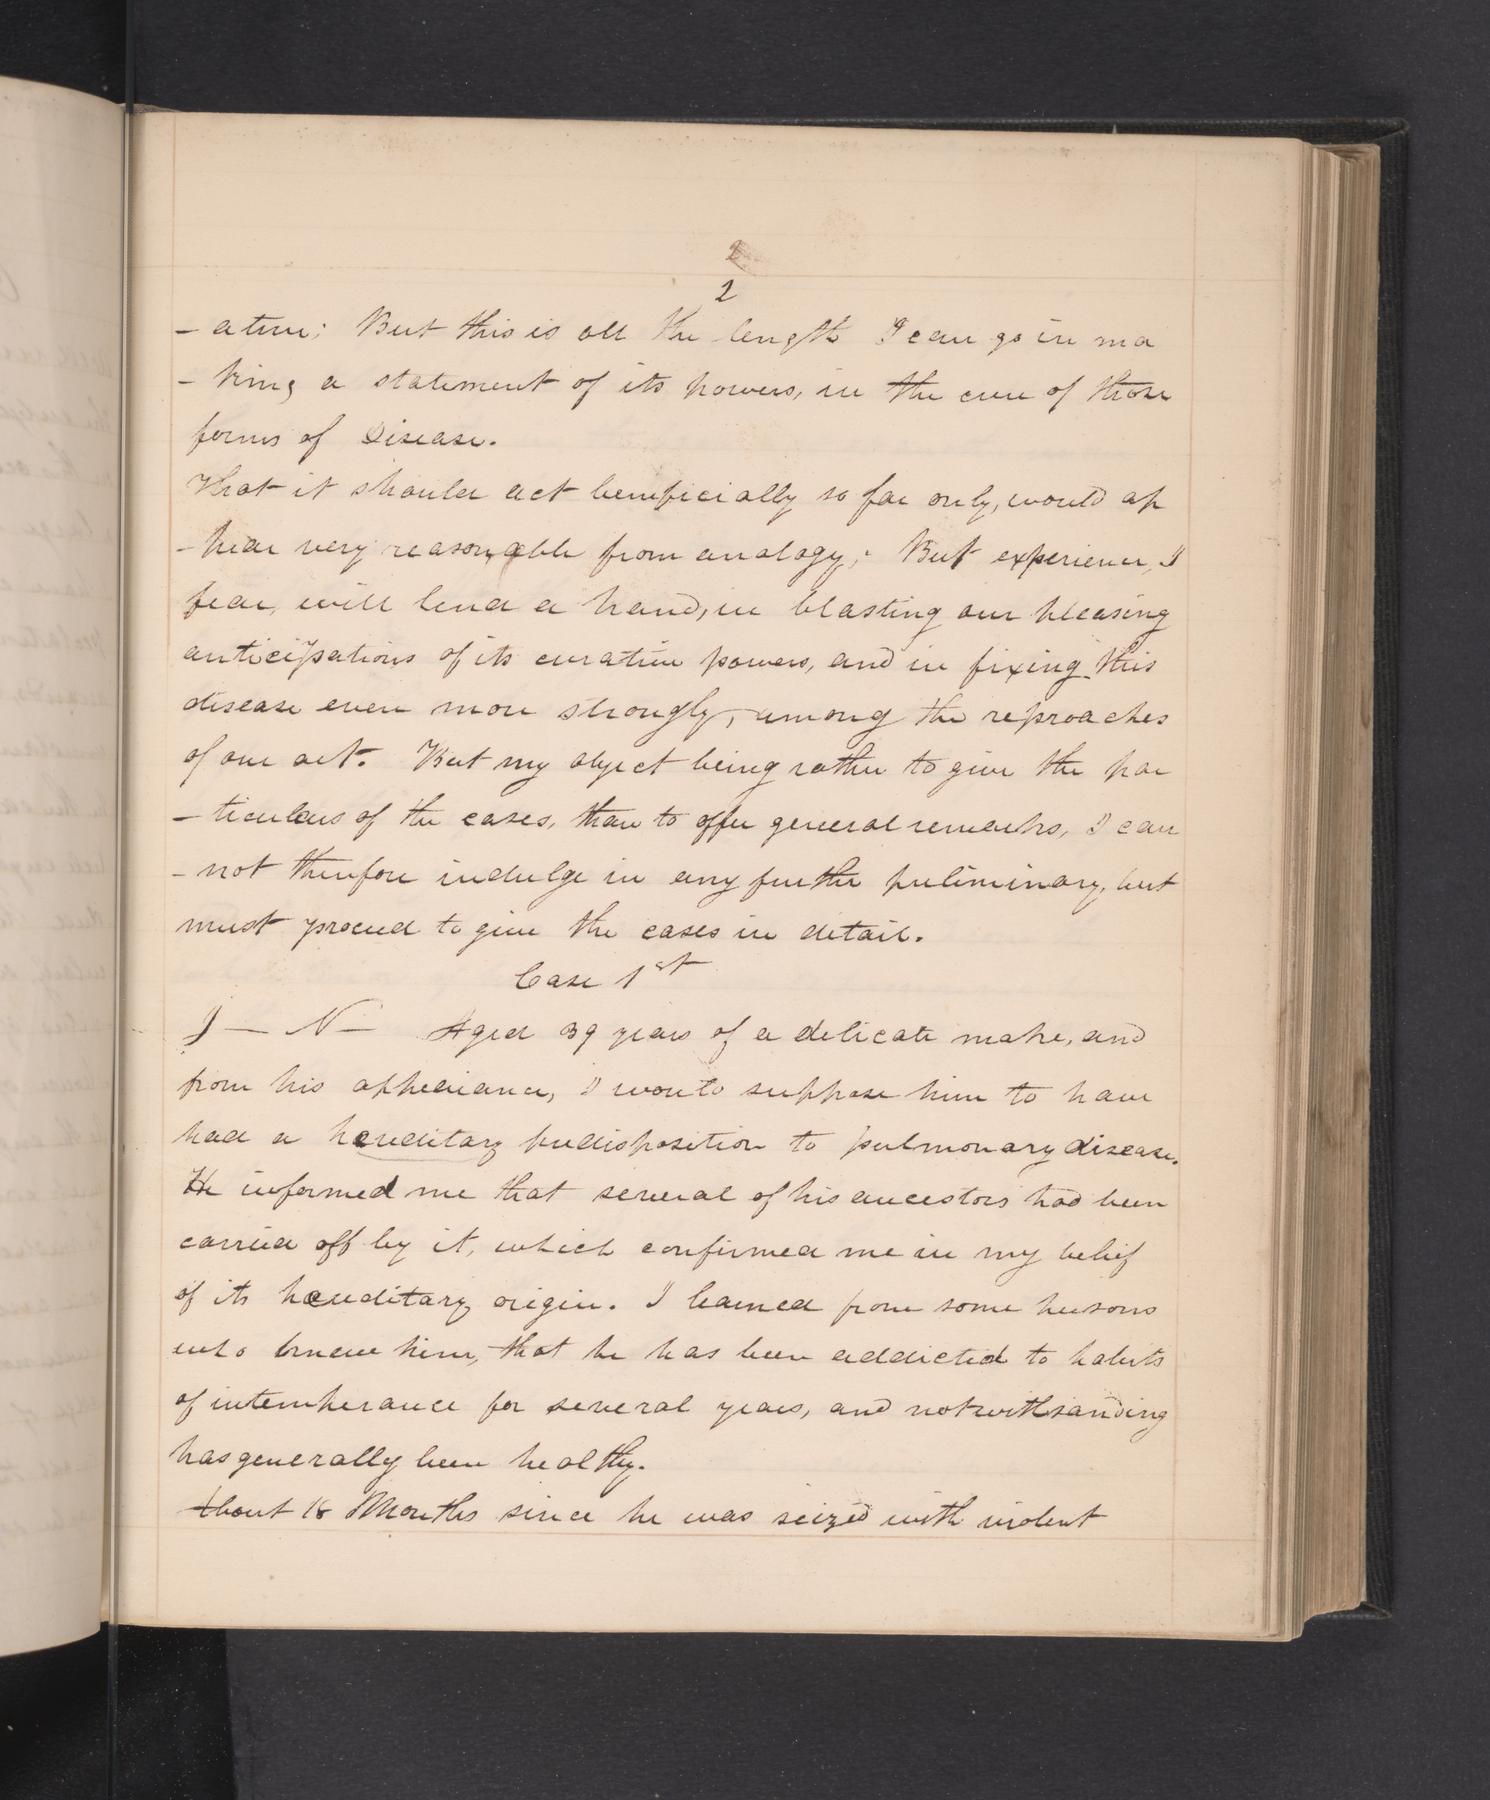 2
2
- ative; But this is all the length I can go in ma
- king a statement of its powers, in the cure of those
forms of Disease.
That it should act beneficially so far only, would ap
- pear very reasonable from analogy; But experience, I
fear, will lend a hand, in blasting our pleasing
anticipations of its curative powers, and in fixing this
disease even more strongly, among the reproaches
of our art. But my object being rather to give the par
- ticulars of the cases, than to offer general remarks, I can
- not therefore indulge in any further preliminary, but
must proceed to give the cases in detail.
Case 1st
J — N — Aged 39 years of a delicate make, and
from his appearance, I would suppose him to have
had a hereditary predisposition to pulmonary disease.
He informed me that several of his ancestors had been
carried off by it, which confirmed me in my belief
of its hereditary origin. I learned from some persons
who knew him, that he has been addicted to habits
of intemperance for several years, and notwithsanding
has generally been healthy.
About 18 Months since he was seized with violent